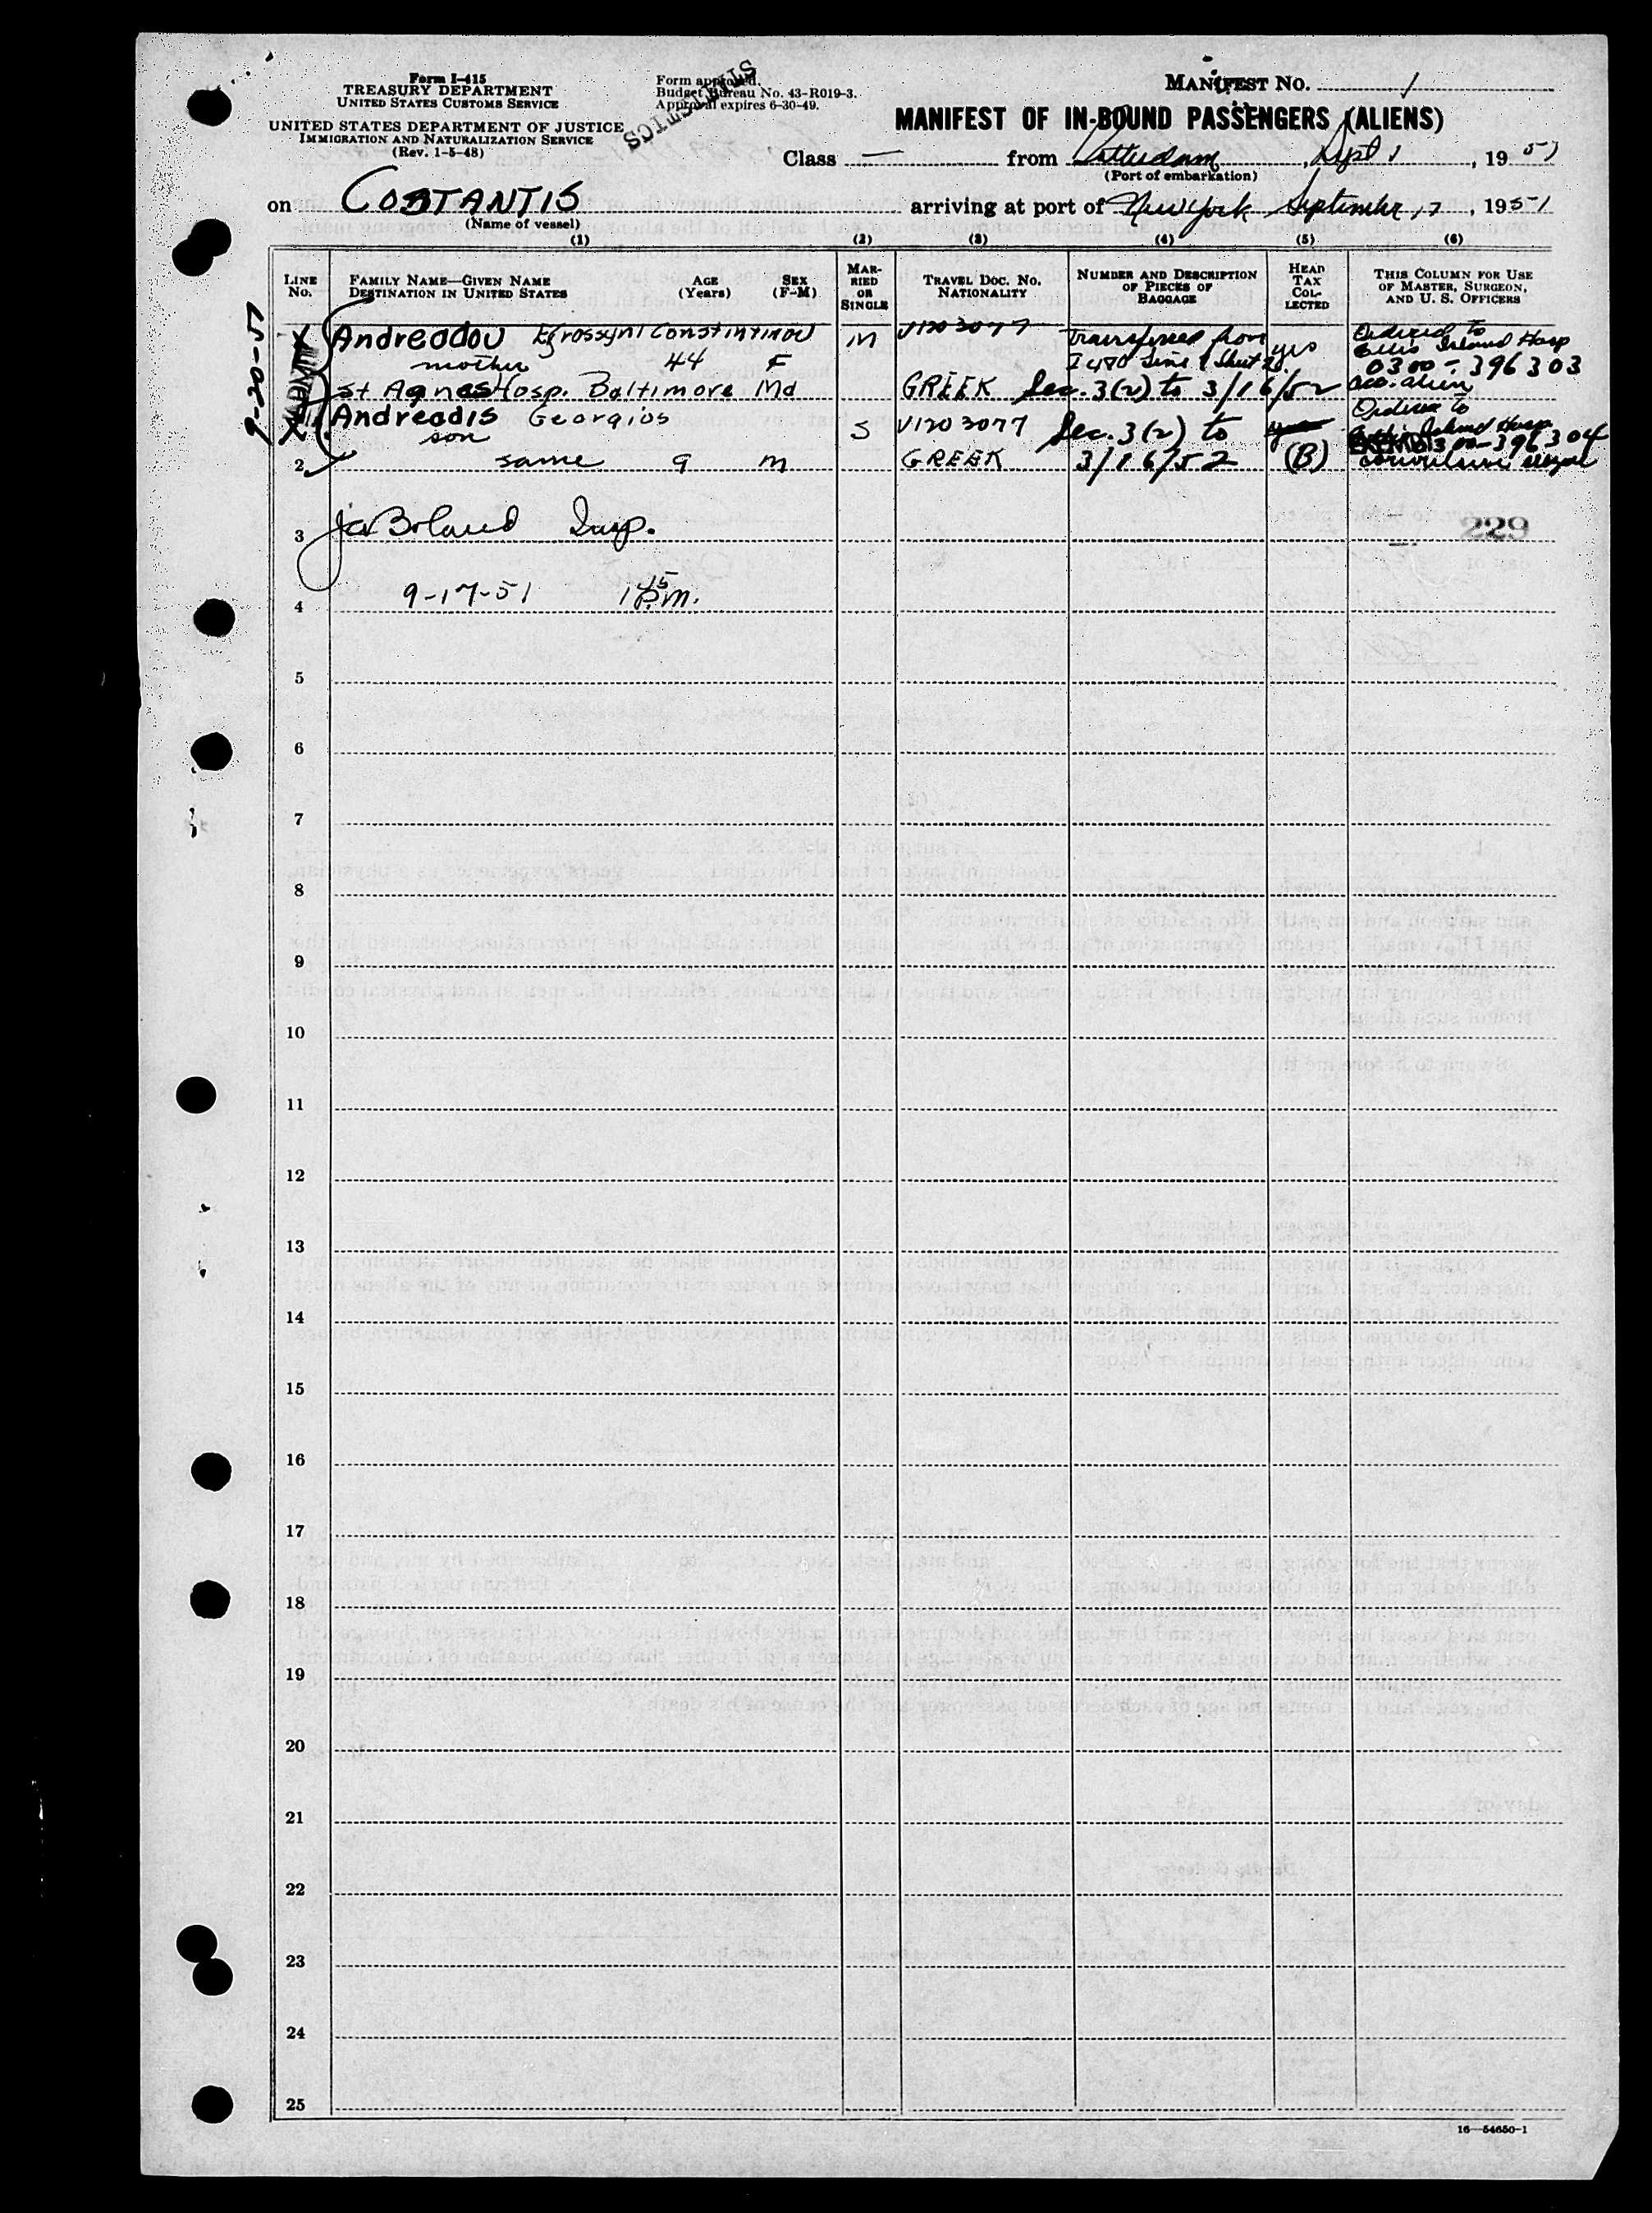 Form I-415
TREASURY DEPARTMENT
UNITED STATES CUSTOMS SERVICE
UNITED STATES DEPARTMENT OF JUSTICE
IMMIGRATION AND NATURALIZATION SERVICE
(Rev. 1-5-48)
Form approved.
Budget Bureau No. 43-R019-3.
Approval expires 6-30-49.
MANIFEST NO. 1
MANIFEST OF IN-BOUND PASSENGERS (ALIENS)
Class — from Rotterdam, Sept 1, 1951
(Port of embarkation)
on COSTANTIS arriving at port of New York September 17, 1951
(Name of vessel)
(1) (2) (3) (4) (5) (6)
LINE No.
FAMILY NAME—GIVEN NAME
DESTINATION IN UNITED STATES
AGE (Years)
SEX (F-M)
MARRIED OR SINGLE
TRAVEL DOC. NO. NATIONALITY
NUMBER AND DESCRIPTION OF PIECES OF BAGGAGE
HEAD TAX COLLECTED
THIS COLUMN FOR USE OF MASTER, SURGEON, AND U. S. OFFICERS
9-20-51
Andreadou Efrossyni Constantinou M V1203077 transferred from yes Ordered to
mother 44 F I 480 Line 1 Sheet 2 Ellis Island Hosp
0300-396303
St Agnes Hosp. Baltimore Md GREEK Sec. 3(2) to 3/16/52 acc. alien
Andreadis Georgios S V1203077 Sec. 3(2) to Ordered to
son Ellis Island Hosp.
0300-396304
2 same 9 M GREEK 3/16/52 (B) convulsive
3 Boland Insp.
229
4 9-17-51 1 15 P.m.
5
6
7
8
9
10
11
12
13
14
15
16
17
18
19
20
21
22
23
24
25
16—54650-1